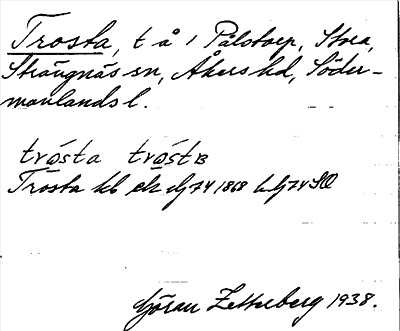 Trosta, t å i Pålstorp, Stora,
Strängnäs sn, Åkers hd, Söder-
manlands l.
trósta tróst
Trosta 1868
Göran Zetterberg 1938.